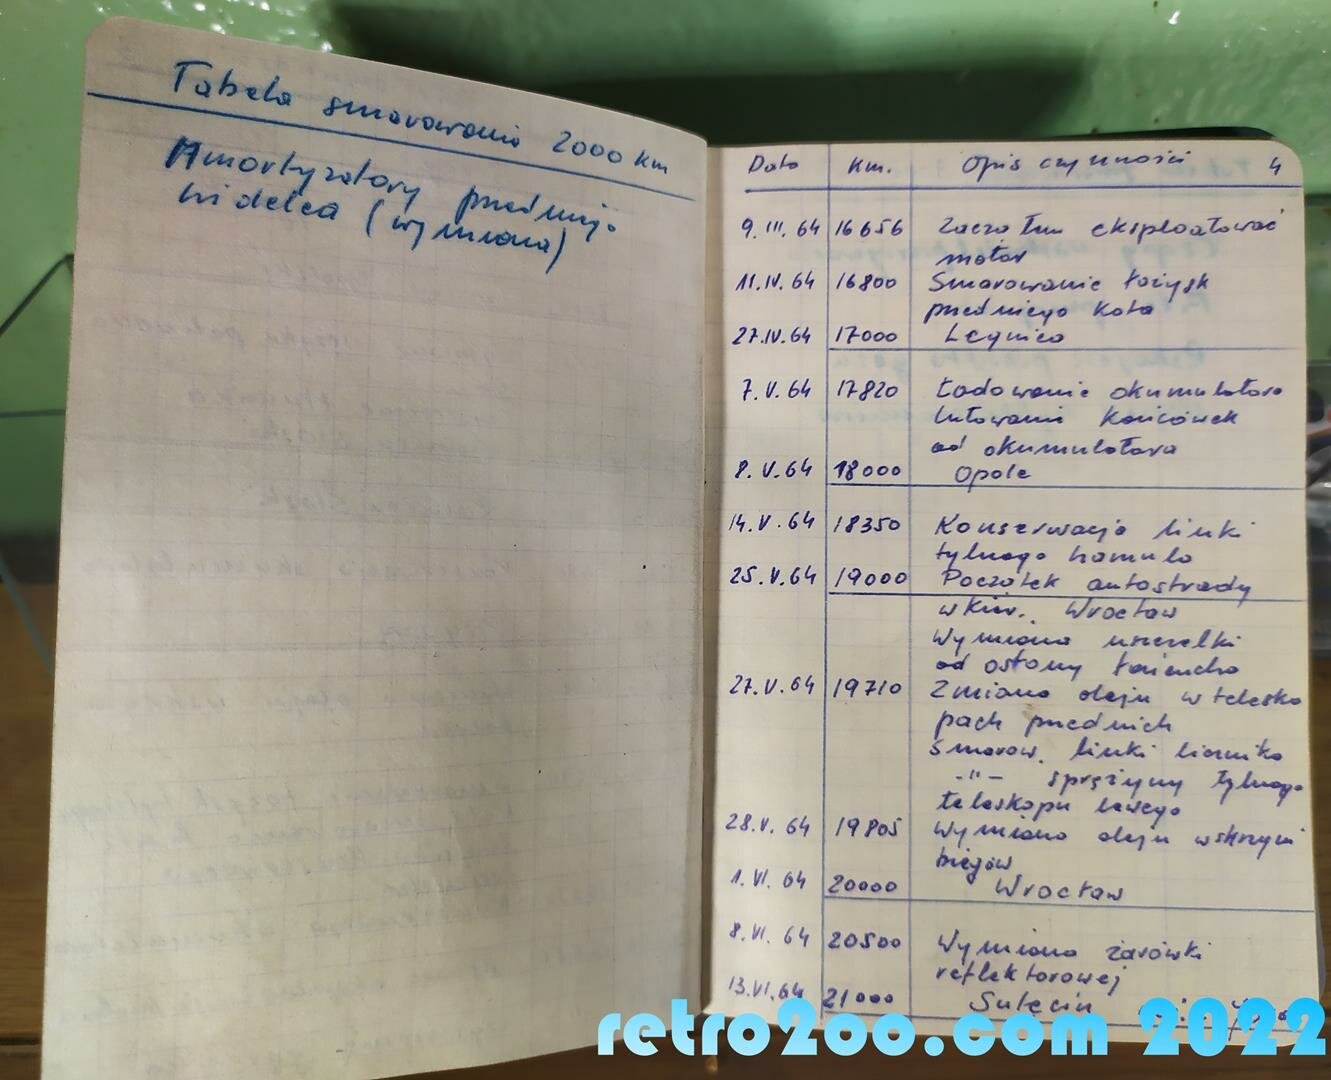 Tabela smarowania 2000 km
Amortyzatory przedniego
widelca (wymiana)
Data Km. Opis czynności 4
9.III.64 16656 Zacząłem eksploatować
motor
11.IV.64 16800 Smarowanie łożysk
przedniego koła
27.IV.64 17000 Legnica
7.V.64 17820 Ładowanie akumulatora
lutowanie końcówek
od akumulatora
8.V.64 18000 Opole
14.V.64 18350 Konserwacja linki
tylnego hamulca
25.V.64 19000 Początek autostrady
w kier. Wrocław
Wymiana uszczelki
od osłony łańcucha
27.V.64 19710 Zmiana oleju w telesko
pach przednich
Smarow. linki licznika
-"- sprężyny tylnego
teleskopu lewego
28.V.64 19805 Wymiana oleju w skrzyni
biegów
1.VI.64 20000 Wrocław
8.VI.64 20500 Wymiana żarówki
reflektorowej
13.VI.64 21000 Sulęcin
retro200.com 2022